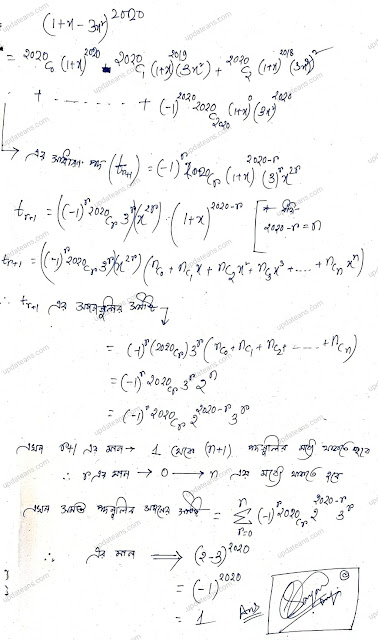 (1+x - 3x²)^2020
= ²⁰²⁰C₀ (1+x)²⁰²⁰ - ²⁰²⁰C₁ (1+x)²⁰¹⁹ (3x²) + ²⁰²⁰C₂ (1+x)²⁰¹⁸ (3x²)²
+ ........ + (-1)²⁰²⁰ ²⁰²⁰C₂₀₂₀ (1+x)⁰ (3x²)²⁰²⁰
→ এর পদ (t_{r+1}) = (-1)^r ²⁰²⁰C_r (1+x)^{2020-r} (3)^r x^{2r}
t_{r+1} = ((-1)^r ²⁰²⁰C_r 3^r)(x^{2r}) · (1+x)^{2020-r} [ * ধরি- 2020-r = n
t_{r+1} = ((-1)^r ²⁰²⁰C_r 3^r)(x^{2r}) (ⁿC₀ + ⁿC₁x + ⁿC₂x² + ⁿC₃x³ + .... + ⁿCₙxⁿ)
∴ t_{r+1} এর সমষ্টি
= (-1)^r (²⁰²⁰C_r) 3^r (ⁿC₀ + ⁿC₁ + ⁿC₂ + ---- + ⁿCₙ)
= (-1)^r ²⁰²⁰C_r 3^r 2ⁿ
= (-1)^r ²⁰²⁰C_r 2^{2020-r} 3^r
এখন r+1 এর মান → 1 থেকে (n+1) মধ্যে থাকতে হবে
∴ r এর মান → 0 → n এর মধ্যে থাকতে হবে
এখন সমষ্টি = Σ_{r=0}^{n} (-1)^r ²⁰²⁰C_r 2^{2020-r} 3^r
∴ এর মান ⟹ (2-3)²⁰²⁰
= (-1)²⁰²⁰
= 1 Ans
updateans.com